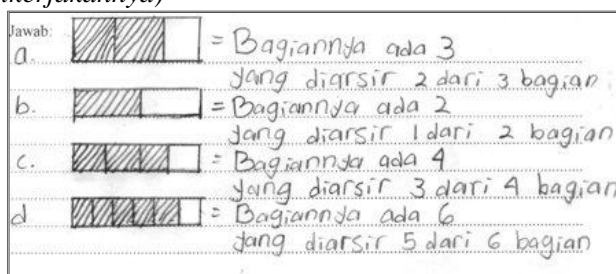 ikerjakannya)
Jawab:
a. = Bagiannya ada 3
yang diarsir 2 dari 3 bagian
b. = Bagiannya ada 2
yang diarsir 1 dari 2 bagian
c. = Bagiannya ada 4
yang diarsir 3 dari 4 bagian
d = Bagiannya ada 6
yang diarsir 5 dari 6 bagian